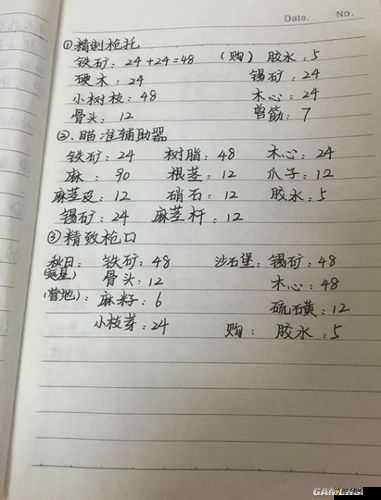 Date. No.
①精制枪托
铁矿：24+24=48 （购）胶水：5
硬木：24 锡矿：24
小树枝：48 木心：24
骨头：12 兽筋：7
②瞄准辅助器
铁矿：24 树脂：48 木心：24
麻：90 根茎：12 爪子：12
麻茎皮：12 硝石：12 胶水：5
锡矿：24 麻茎杆：12
③精致枪口
秋日： 铁矿：48 沙石堡：锡矿：48
骨头：12 木心：48
(营地)：麻籽：6 硫磺：12
小枝芽：24 购：胶水：5